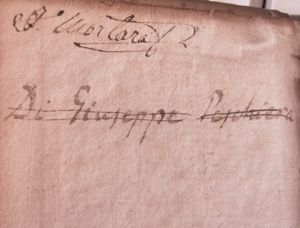 Mortara
Di Giuseppe Peschiera